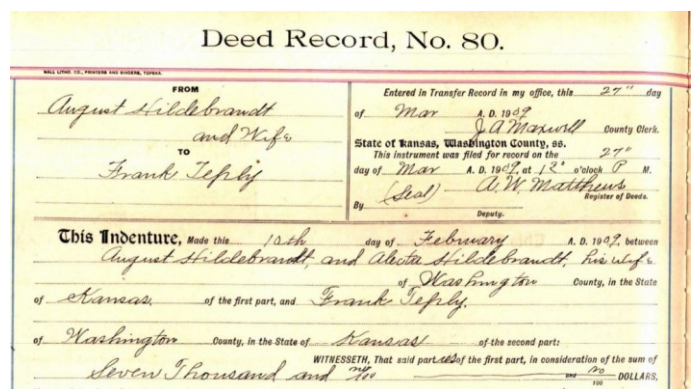 Deed Record, No. 80.
HALL LITHO. CO., PRINTERS AND BINDERS, TOPEKA.
FROM
August Hildebrandt
and Wife
TO
Frank Teply
Entered in Transfer Record in my office, this 27" day
of Mar A. D. 1909
J. A. Maxwell County Clerk.
State of Kansas, Washington County, ss.
This instrument was filed for record on the 27"
day of Mar A. D. 1909, at 12 o'clock P M.
(Seal) A. W. Matthews
Register of Deeds.
By
Deputy.
This Indenture, Made this 10th day of February A. D. 1909, between
August Hildebrandt, and Hildebrandt, his wife
of Washington County, in the State
of Kansas of the first part, and Frank Teply.
of Washington County, in the State of Kansas of the second part:
WITNESSETH, That said parties of the first part, in consideration of the sum of
Seven Thousand and no/100 and no/100 DOLLARS,